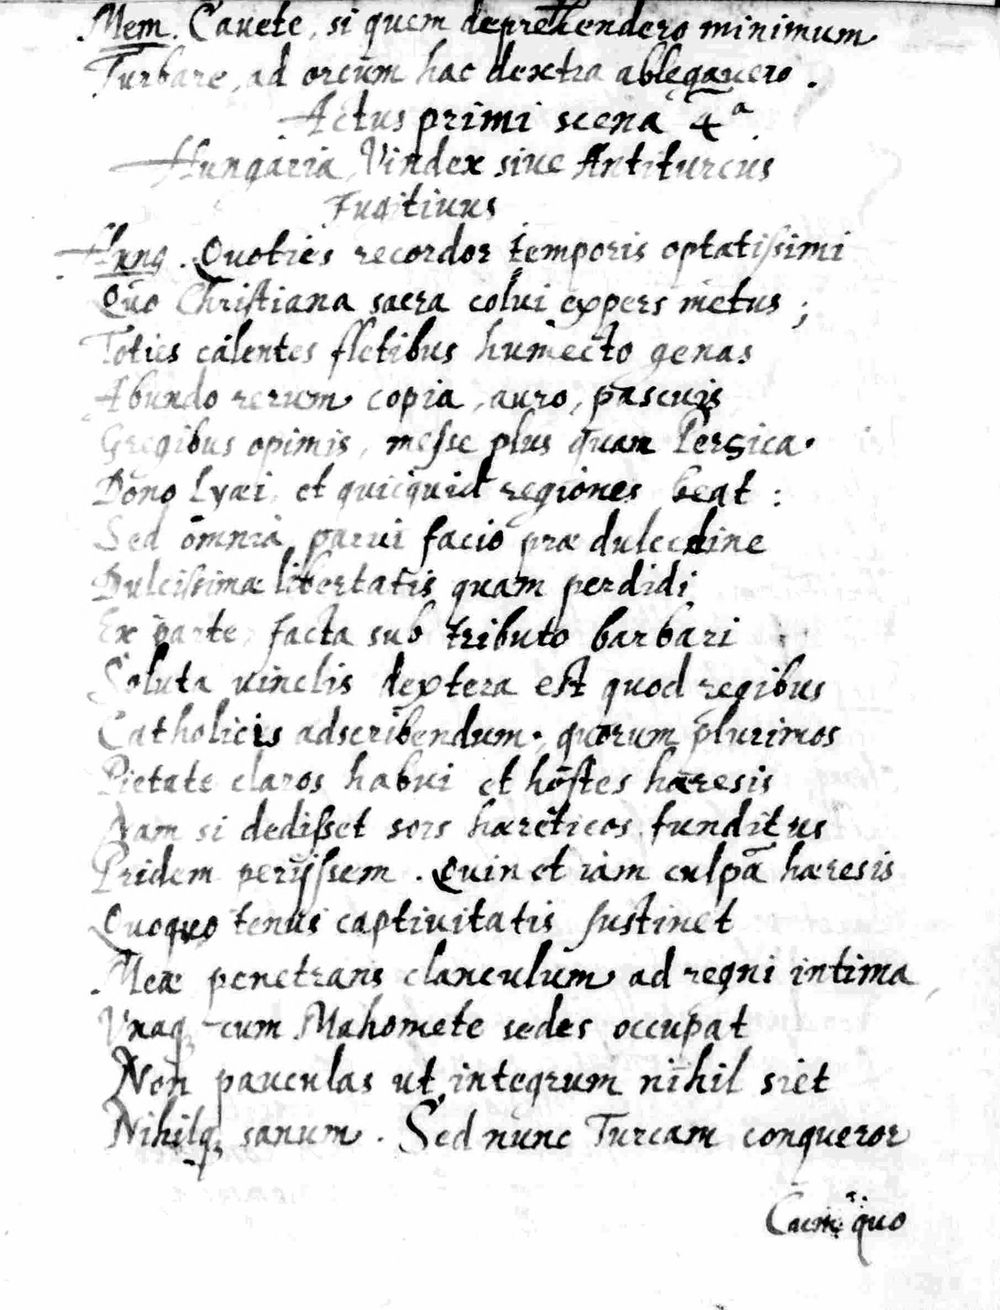 Mem. Cauete, si quem deprehendero minimum
Turbare, ad orcum hac dextra ablegauero.
Actus primi scena 4ª.
Hungaria Vindex siue Antiturcus
Fugitiuus
Hung. Quoties recordor temporis optatissimi
Quo Christiana sacra colui expers metus;
Toties calentes fletibus humecto genas
Abundo rerum copia, auro, pascuis
Gregibus opimis, messe plus quam Persica.
Dono Lyæi, et quicquid regiones beat:
Sed omnia parui facio præ dulcedine
Dulcissimæ libertatis quam perdidi
Ex parte, facta sub tributo barbari
Soluta uinclis dextera est quod regibus
Catholicis adscribendum, quorum plurimos
Pietate claros habui et hostes hæresis
Nam si dedisset sors hæreticos funditus
Pridem perijssem. Quin et iam culpâ hæresis
Quoquo tenus captiuitatis sustinet
Meæ penetrans clanculum ad regni intima,
Vnaq; cum Mahomete sedes occupat
Non pauculas ut integrum nihil siet
Nihilq; sanum. Sed nunc Turcam conqueror
quo